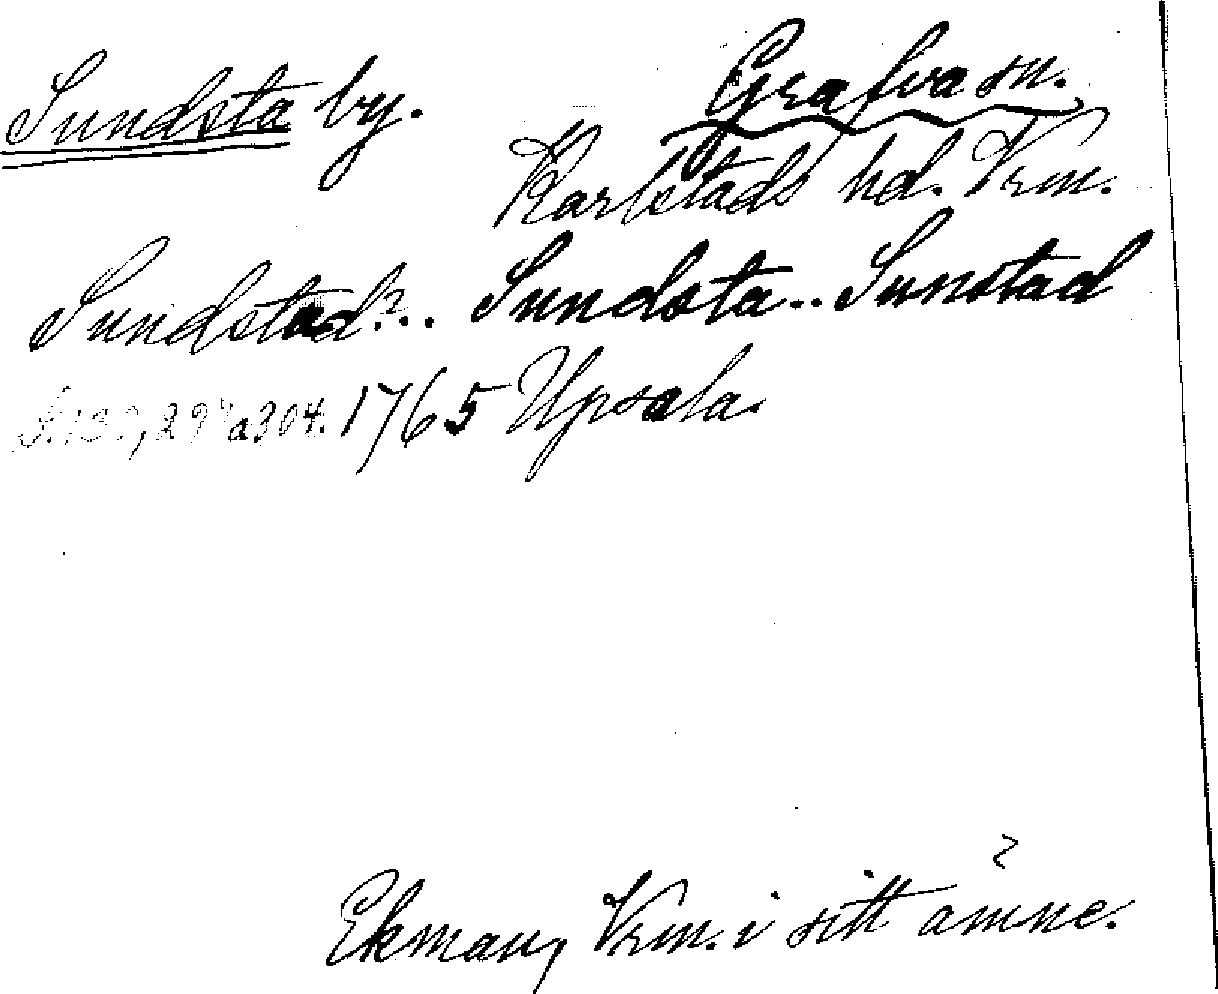 Sundsta by. Grafva sn.
Karlstads hd. Vrm.
Sundstad?.. Sundsta.. Sunstad
S. 139, 297 a 304. 1765 Upsala.
Ekman, Vrm. i sitt ämne.